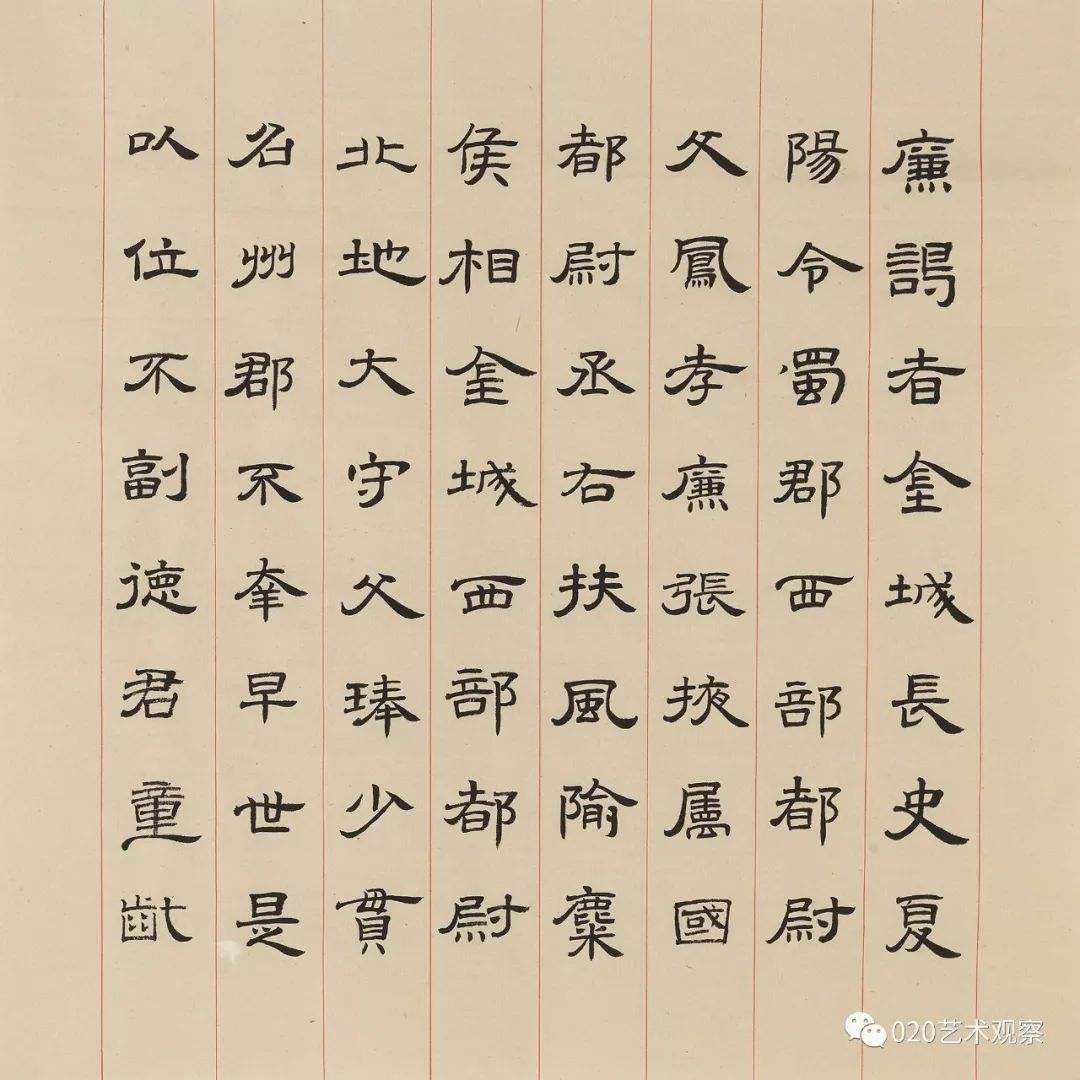 廉謁者金城長史夏
陽令蜀郡西部都尉
父鳳孝廉張掖属國
都尉丞右扶風隃麋
侯相金城西部都尉
北地大守父琫少貫
名州郡不幸早世是
以位不副徳君童齔
020艺术观察